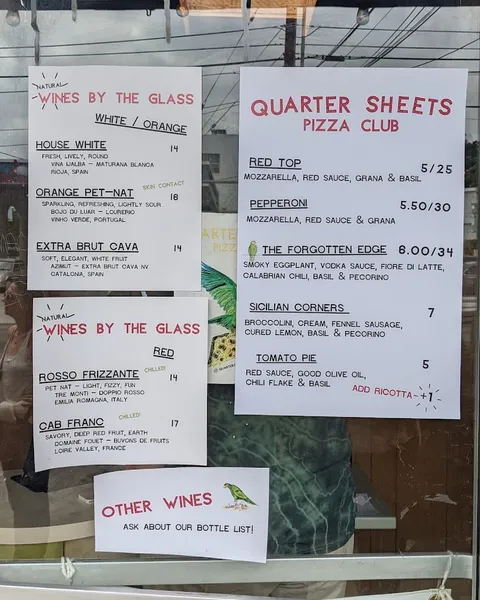 NATURAL
WINES BY THE GLASS
WHITE / ORANGE
HOUSE WHITE 14
FRESH, LIVELY, ROUND
VINA ILALBA - MATURANA BLANCA
RIOJA, SPAIN
SKIN CONTACT
ORANGE PET-NAT 18
SPARKLING, REFRESHING, LIGHTLY SOUR
BOJO DU LUAR - LOUREIRO
VINHO VERDE, PORTUGAL
EXTRA BRUT CAVA 14
SOFT, ELEGANT, WHITE FRUIT
AZIMUT - EXTRA BRUT CAVA NV
CATALONIA, SPAIN
NATURAL
WINES BY THE GLASS
RED
CHILLED!
ROSSO FRIZZANTE 14
PET NAT - LIGHT, FIZZY, FUN
TRE MONTI - DOPPIO ROSSO
EMILIA ROMAGNA, ITALY
CHILLED!
CAB FRANC 17
SAVORY, DEEP RED FRUIT, EARTH
DOMAINE FOUET - BUVONS DE FRUITS
LOIRE VALLEY, FRANCE
OTHER WINES
ASK ABOUT OUR BOTTLE LIST!
QUARTER SHEETS
PIZZA CLUB
RED TOP 5/25
MOZZARELLA, RED SAUCE, GRANA & BASIL
PEPPERONI 5.50/30
MOZZARELLA, RED SAUCE & GRANA
THE FORGOTTEN EDGE 6.00/34
SMOKY EGGPLANT, VODKA SAUCE, FIORE DI LATTE,
CALABRIAN CHILI, BASIL & PECORINO
SICILIAN CORNERS 7
BROCCOLINI, CREAM, FENNEL SAUSAGE,
CURED LEMON, BASIL & PECORINO
TOMATO PIE 5
RED SAUCE, GOOD OLIVE OIL,
CHILI FLAKE & BASIL
ADD RICOTTA - +1